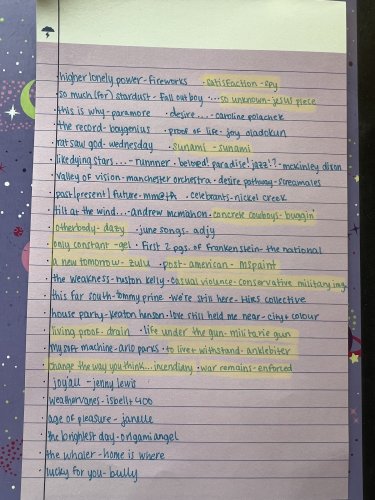 · higher lonely power - fireworks · satisfaction - spy
· so much (for) stardust - fall out boy · ... so unknown - jesus piece
· this is why - paramore · desire.... - caroline polachek
· the record - boygenius · proof of life - joy oladokun
· rat saw god - wednesday · sunami - sunami
· like dying stars... - runnner · beloved! paradise! jazz!? - mckinley dixon
· valley of vision - manchester orchestra · desire pathway - screamales
· past | present | future - mmeth · celebrants - nickel creek
· tilt at the wind... - andrew mcmahon · concrete cowboys - buggin'
· otherbody - dazy · june songs - adjy
· only constant - gel · first 2 pgs. of frankenstein - the national
· a new tomorrow - zulu · post-american - MSpaint
· the weakness - ruston kelly · casual violence - conservative military img
· this far south - tommy prine · we're still here - HIRS collective
· house party - keaton henson · love still held me near - city + colour
· living proof - drain · life under the gun - militarie gun
· my soft machine - arlo parks · to live + withstand - anklebiter
· change the way you think... incendiary · war remains - enforced
· joy'all - jenny lewis
· weathervanes - isbell + 400
· age of pleasure - janelle
· the brightest day - origami angel
· the whaler - home is where
· lucky for you - bully